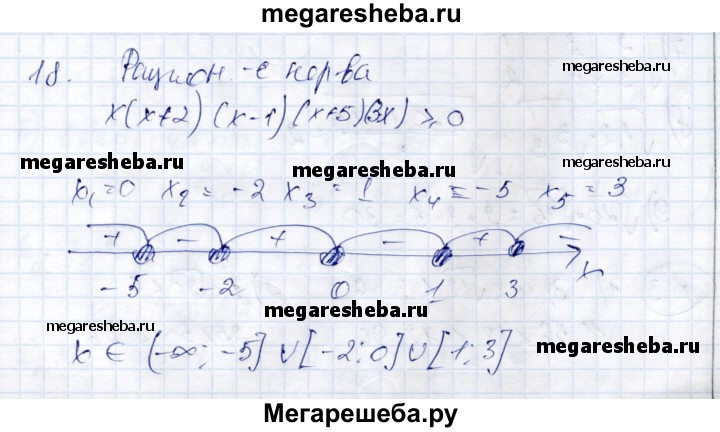 megaresheba.ru
18. Рацион-е нер-ва
megaresheba.ru
x(x+2)(x-1)(x+5)(3-x) ⩾ 0
megaresheba.ru
megaresheba.ru
x₁=0 x₂=-2 x₃=1 x₄=-5 x₅=3
+ - + - + -
x
-5 -2 0 1 3
megaresheba.ru
megaresheba.ru
x ∈ (-∞; -5] ∪ [-2; 0] ∪ [1; 3]
megaresheba.ru
Мегарешеба.ру